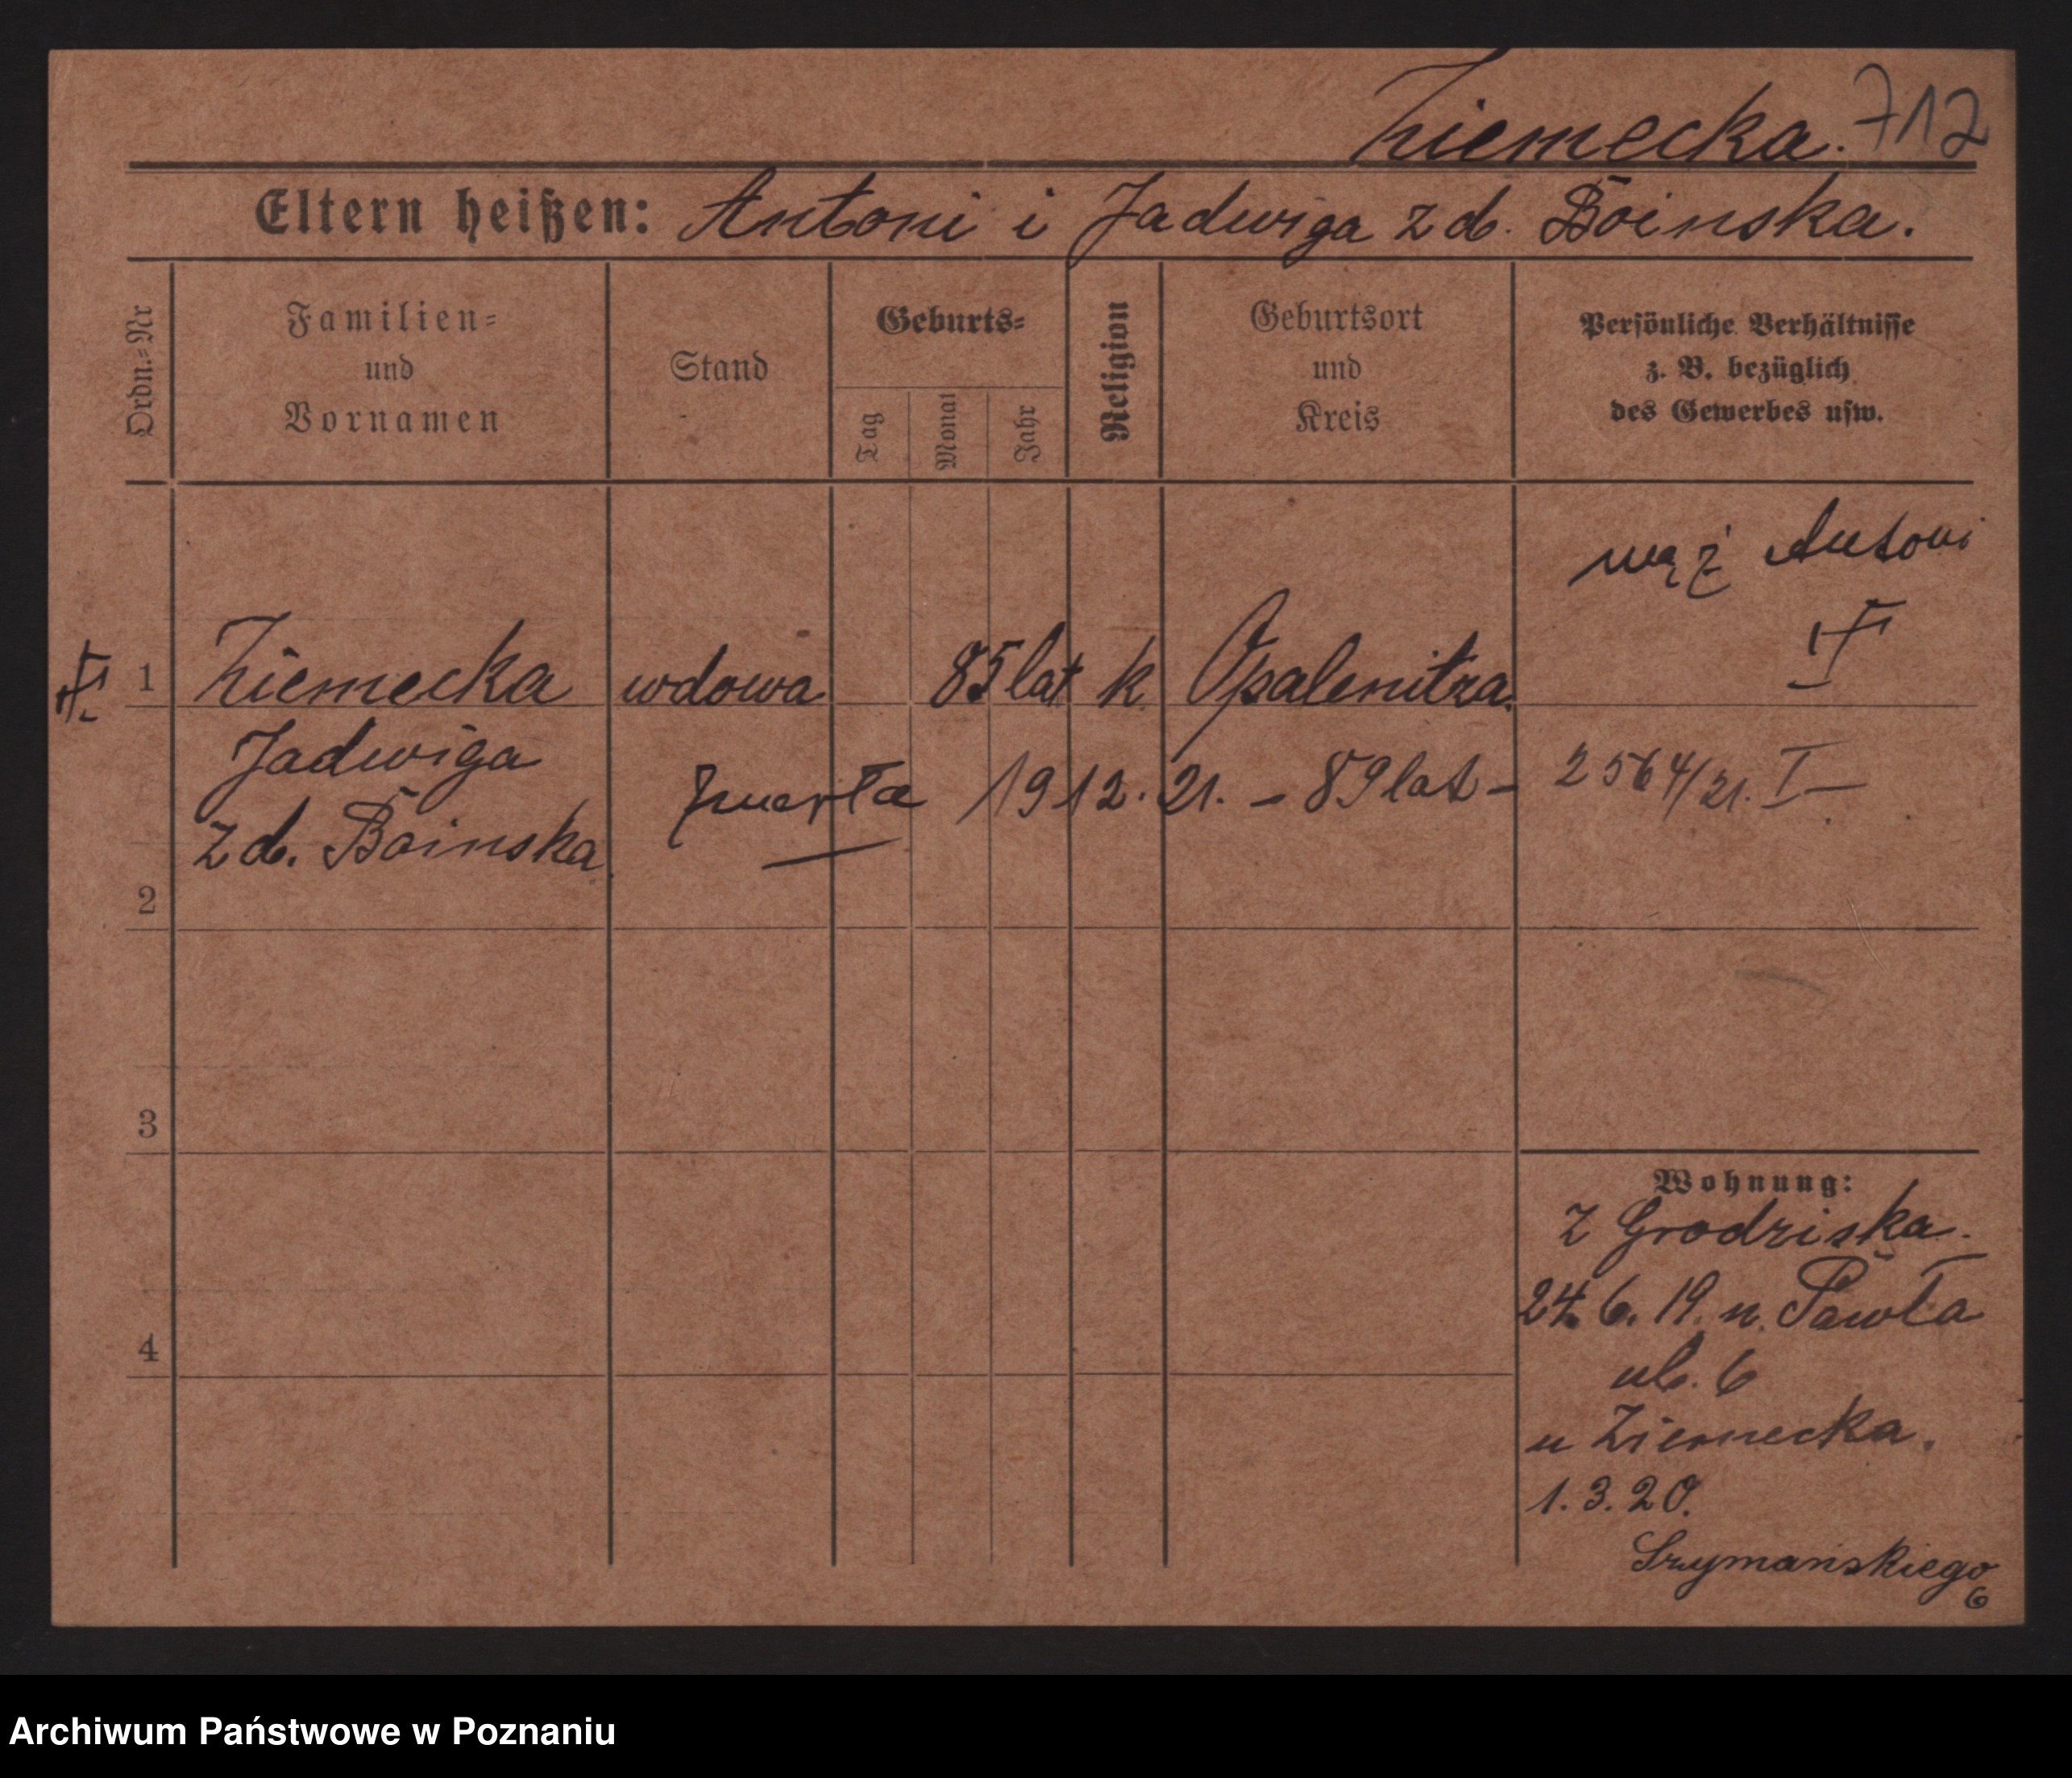 Ziemecka. 712
Eltern heißen: Antoni i Jadwiga z d. Boinska.
Ordn.=Nr
Familien=
und
Vornamen
Stand
Geburts=
Tag
Monat
Jahr
Religion
Geburtsort
und
Kreis
Persönliche Verhältnisse
z. B. bezüglich
des Gewerbes usw.
mąż Antoni
1 Ziemecka wdowa 85 lat k. Opalenitza.
Jadwiga
zmarła 19 12. 21. – 89 lat – 2564/21. I –
z d. Boinska
2
3
4
Wohnung:
z Grodziska.
24. 6. 19. n. Pawła
ul. 6
u Ziemecka.
1. 3. 20.
Szymańskiego
6
Archiwum Państwowe w Poznaniu